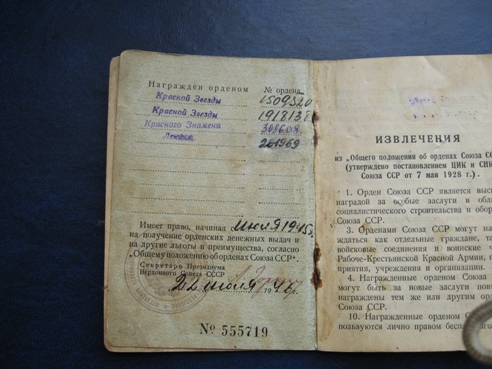 Награждён орденом № ордена
Красной Звезды 1509320
Красной Звезды
Красного Знамени
Ленина
Имеет право, начиная июля 1945
на получение орденских денежных выдач и
на другие льготы и преимущества, согласно
„Общему положению об орденах Союза ССР“.
Секретарь Президиума
Верховного Совета СССР
22 июля 1947
№ 555719
ИЗВЛЕЧЕНИЯ
из „Общего положения об орденах Союза СС
(утверждено постановлением ЦИК и СНК
Союза ССР от 7 мая 1928 г.).
1. Орден Союза ССР является высш
наградой за особые заслуги в облас
социалистического строительства и оборо
Союза ССР.
3. Орденами Союза ССР могут на
ждаться как отдельные граждане, та
войсковые соединения и воинские
Рабоче-Крестьянской Красной Армии,
приятия, учреждения и организации.
4. Награжденные орденом Союза
могут быть за новые заслуги пов
награждены тем же или другим ор
Союза ССР.
10. Награжденные орденом С
пользуются лично правом бесп